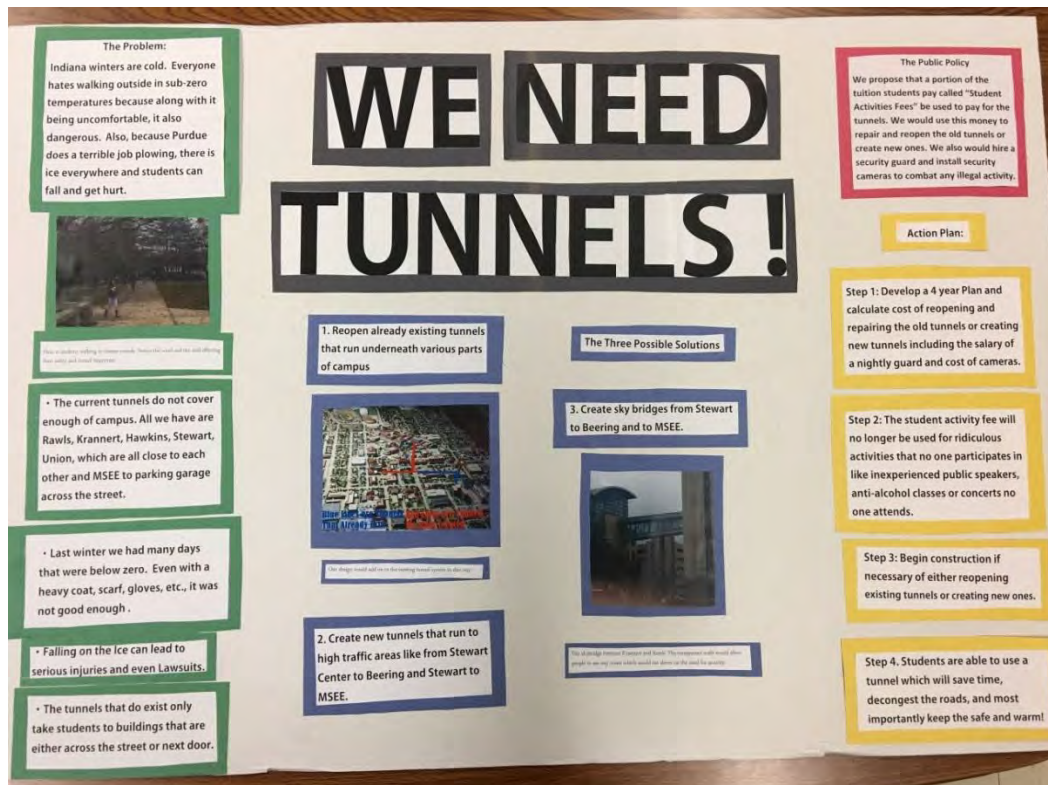 WE NEED
TUNNELS !
The Problem:
Indiana winters are cold. Everyone
hates walking outside in sub-zero
temperatures because along with it
being uncomfortable, it also
dangerous. Also, because Purdue
does a terrible job plowing, there is
ice everywhere and students can
fall and get hurt.
• The current tunnels do not cover
enough of campus. All we have are
Rawls, Krannert, Hawkins, Stewart,
Union, which are all close to each
other and MSEE to parking garage
across the street.
• Last winter we had many days
that were below zero. Even with a
heavy coat, scarf, gloves, etc., it was
not good enough .
• Falling on the Ice can lead to
serious injuries and even Lawsuits.
• The tunnels that do exist only
take students to buildings that are
either across the street or next door.
The Three Possible Solutions
1. Reopen already existing tunnels
that run underneath various parts
of campus
Blue lines are
That Already
2. Create new tunnels that run to
high traffic areas like from Stewart
Center to Beering and Stewart to
MSEE.
3. Create sky bridges from Stewart
to Beering and to MSEE.
The Public Policy
We propose that a portion of the
tuition students pay called "Student
Activities Fees" be used to pay for the
tunnels. We would use this money to
repair and reopen the old tunnels or
create new ones. We also would hire a
security guard and install security
cameras to combat any illegal activity.
Action Plan:
Step 1: Develop a 4 year Plan and
calculate cost of reopening and
repairing the old tunnels or creating
new tunnels including the salary of
a nightly guard and cost of cameras.
Step 2: The student activity fee will
no longer be used for ridiculous
activities that no one participates in
like inexperienced public speakers,
anti-alcohol classes or concerts no
one attends.
Step 3: Begin construction if
necessary of either reopening
existing tunnels or creating new ones.
Step 4. Students are able to use a
tunnel which will save time,
decongest the roads, and most
importantly keep the safe and warm!